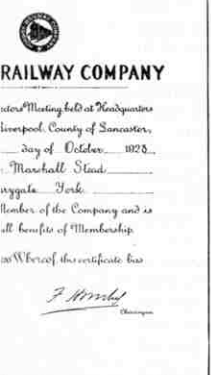 RAILWAY COMPANY
ctors Meeting held at Headquarters
Liverpool, County of Lancaster,
day of October 1928
Marshall Stead
ygate York
Member of the Company and is
all benefits of Membership.
Whereof this certificate has
F Hornby
Chairman